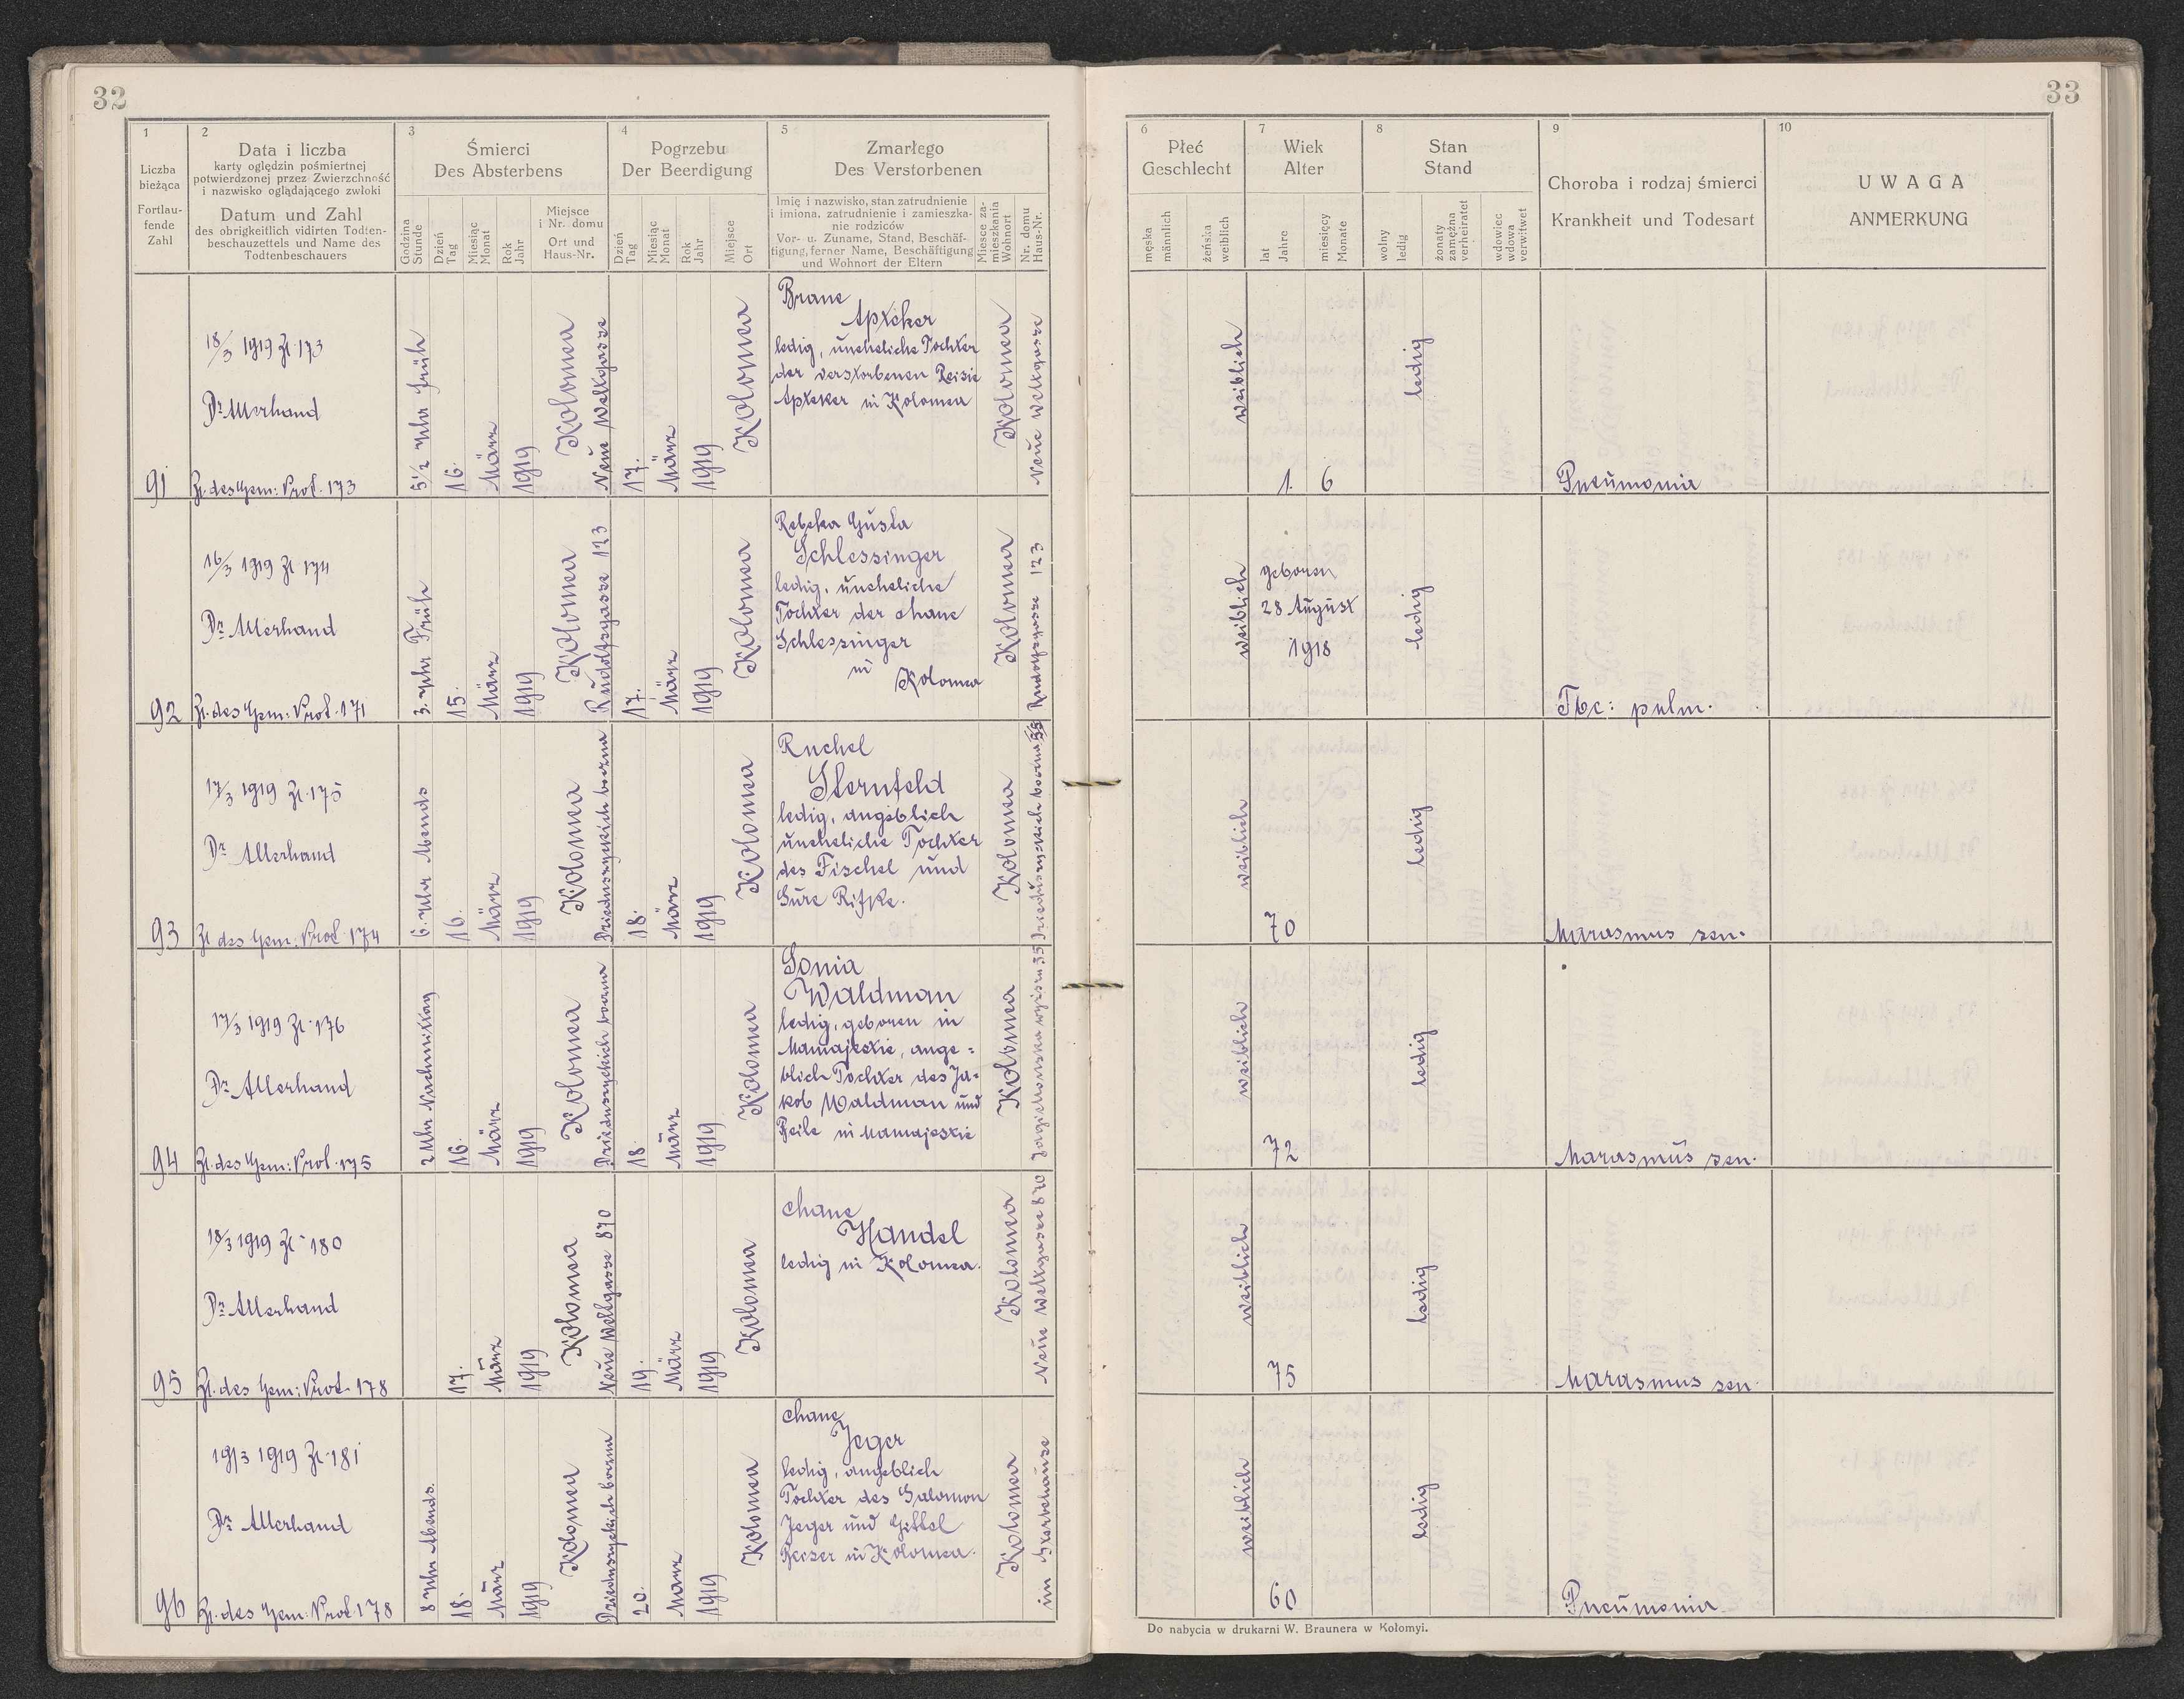 32
1
Liczba
bieżąca
Fortlau-
fende
Zahl
2
Data i liczba
karty oględzin pośmiertnej
potwierdzonej przez Zwierzchność
i nazwisko oglądającego zwłoki
Datum und Zahl
des obrigkeitlich vidirten Todten-
beschauzettels und Name des
Todtenbeschauers
3
Śmierci
Des Absterbens
Godzina
Stunde
Dzień
Tag
Miesiąc
Monat
Rok
Jahr
Miejsce
i Nr. domu
Ort und
Haus-Nr.
4
Pogrzebu
Der Beerdigung
Dzień
Tag
Miesiąc
Monat
Rok
Jahr
Miejsce
Ort
5
Zmarłego
Des Verstorbenen
Imię i nazwisko, stan zatrudnienie
i imiona, zatrudnienie i zamieszka-
nie rodziców
Vor- u. Zuname, Stand, Beschäf-
tigung, ferner Name, Beschäftigung
und Wohnort der Eltern
Miesce za-
mieszkania
Wohnort
Nr. domu
Haus-Nr.
91
18/3 1919 Zl. 173
Dr Allerhand
Zl. des Gem: Prot. 173
5 1/2 Uhr Früh
16.
März
1919
Kolomea
Neue Weltgasse
17.
März
1919
Kolomea
Brane
Apteker
ledig, uneheliche Tochter
der verstorbenen Reisie
Apteker in Kolomea
Kolomea
Neue Weltgasse
92
16/3 1919 Zl 174
Dr Allerhand
Zl. des Gem: Prot. 171
3. Uhr Früh
15.
März
1919
Kolomea
Rudolfsgasse 123
17.
März
1919
Kolomea
Rebeka Gusta
Schlessinger
ledig, uneheliche
Tochter der Chane
Schlessinger
in
Kolomea
Kolomea
Rudolfsgasse 123
93
17/3 1919 Zl. 175
Dr Allerhand
Zl des Gem: Prot. 174
6. Uhr Abends
16.
März
1919
Kolomea
Dzieduszyckich boczna
18.
März
1919
Kolomea
Ruchel
Sternfeld
ledig, angeblich
uneheliche Tochter
des Fischel und
Sure Rifke.
Kolomea
Dzieduszyckich boczna
94
17/3 1919 Zl. 176
Dr Allerhand
Zl. des Gem: Prot. 175
2 Uhr Nachmittag
16.
März
1919
Kolomea
Dzieduszyckich boczna
18.
März
1919
Kolomea
Sonia
Waldman
ledig, geboren in
Mamajestie, ange=
blich Tochter des Ja=
kob Waldman und
Beile in Mamajestie
Kolomea
35
95
18/3 1919 Zl. 180
Dr Allerhand
Zl. des Gem: Prot. 178
17.
März
1919
Kolomea
Neue Weltgasse 870
19.
März
1919
Kolomea
Chane
Handel
ledig in Kolomea.
Kolomea
Neue Weltgasse 870
96
19/3 1919 Zl. 181
Dr Allerhand
Zl. des Gem: Prot. 178
8 Uhr Abends.
18.
März
1919
Kolomea
Dzieduszyckich boczna
20.
März
1919
Kolomea
Chane
Jeger
ledig, angeblich
Tochter des Salomon
Jeger und Gittel
Reiser in Kolomea.
Kolomea
im Sterbehause
33
6
Płeć
Geschlecht
męska
männlich
żeńska
weiblich
7
Wiek
Alter
lat
Jahre
miesięcy
Monate
8
Stan
Stand
wolny
ledig
żonaty
zamężna
verheiratet
wdowiec
wdowa
verwitwet
9
Choroba i rodzaj śmierci
Krankheit und Todesart
10
UWAGA
ANMERKUNG
weiblich
1. 6
ledig
Pneumonia
weiblich
geboren
28 August
1918
ledig
Tbc: pulm.
weiblich
70
ledig
Marasmus sen.
weiblich
72
ledig
Marasmus sen.
weiblich
75
ledig
Marasmus sen.
weiblich
60
ledig
Pneumonia
Do nabycia w drukarni W. Braunera w Kołomyi.